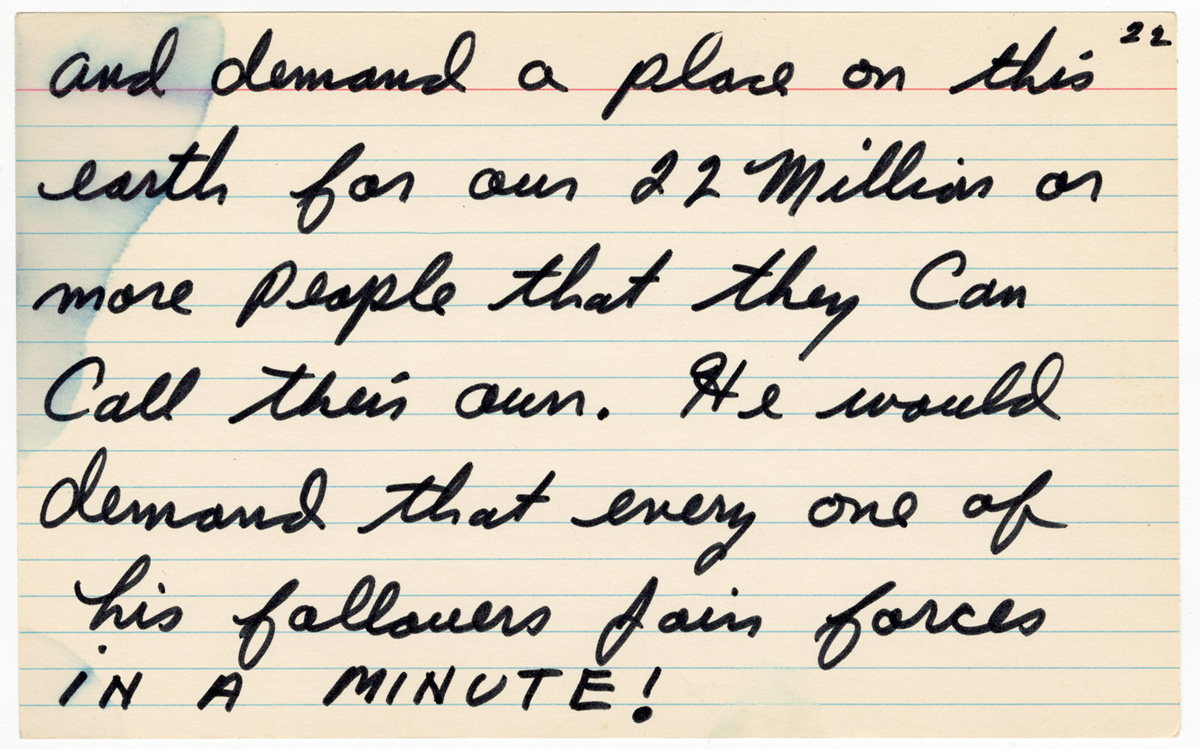 22
and demand a place on this
earth for our 22 Million or
more people that they Can
Call their own. He would
demand that every one of
his followers join forces
iN A MINUTE!